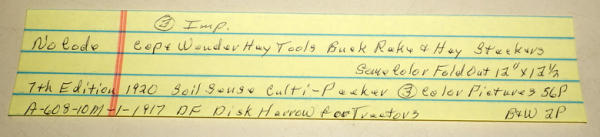 ③ Imp.
No Code Copt Wonder Hay Tools Buck Rake & Hay Stackers
Some Color Fold Out 12"x12½
7th Edition 1920 Soil Sense Culti-Packer ③ Color Pictures 56P
A-608-10M-1-1917 DF Disk Harrow for Tractors B&W 2P